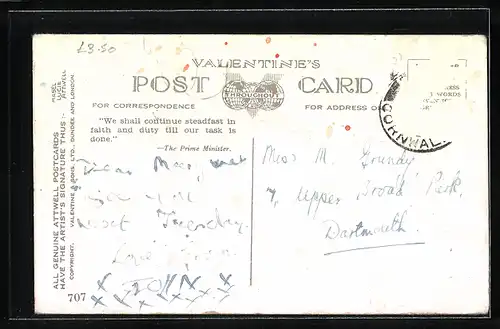 £3.50
VALENTINE'S
POST CARD
THROUGHOUT
FOR CORRESPONDENCE
FOR ADDRESS O
"We shall continue steadfast in
faith and duty till our task is
done."
—The Prime Minister.
Dear
next Tuesday.
Love from
JOHN
x x x x x x
Miss M. Grundy
7, Upper Broad Park,
Dartmouth.
CORNWAL
WORDS
ALL GENUINE ATTWELL POSTCARDS
HAVE THE ARTIST'S SIGNATURE THUS :-
MABEL
LUCIE
ATTWELL
COPYRIGHT. VALENTINE & SONS, LTD., DUNDEE AND LONDON
707